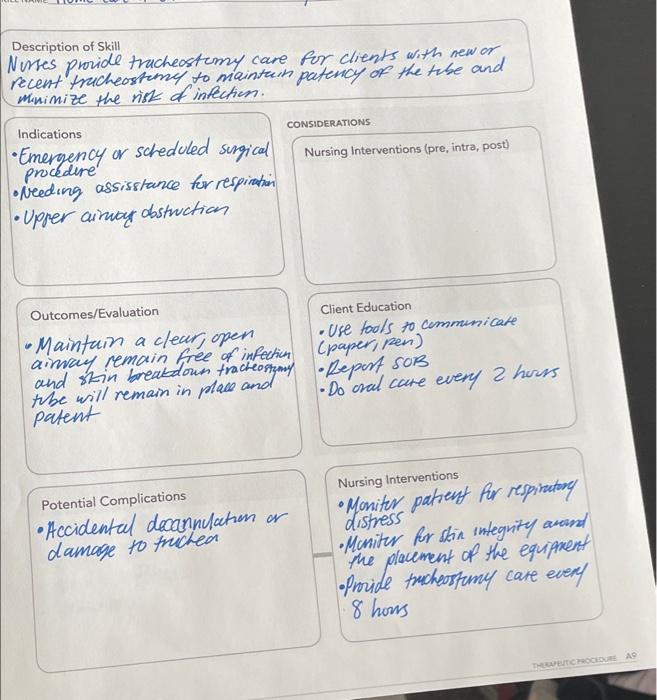 Description of Skill
Nurses provide tracheostomy care for clients with new or
recent tracheostomy to maintain patency of the tube and
minimize the risk of infection.
Indications
• Emergency or scheduled surgical
procedure
• Needing assisstance for respiration
• Upper airway obstruction
CONSIDERATIONS
Nursing Interventions (pre, intra, post)
Outcomes/Evaluation
• Maintain a clear, open
airway remain free of infection
and skin breakdown tracheostomy
tube will remain in place and
patent
Client Education
• Use tools to communicate
(paper, pen)
• Report SOB
• Do oral care every 2 hours
Potential Complications
• Accidental decannulation or
damage to trachea
Nursing Interventions
• Monitor patient for respiratory
distress
• Monitor for skin integrity around
the placement of the equipment
• Provide tracheostomy care every
8 hours
THERAPEUTIC PROCEDURE A9